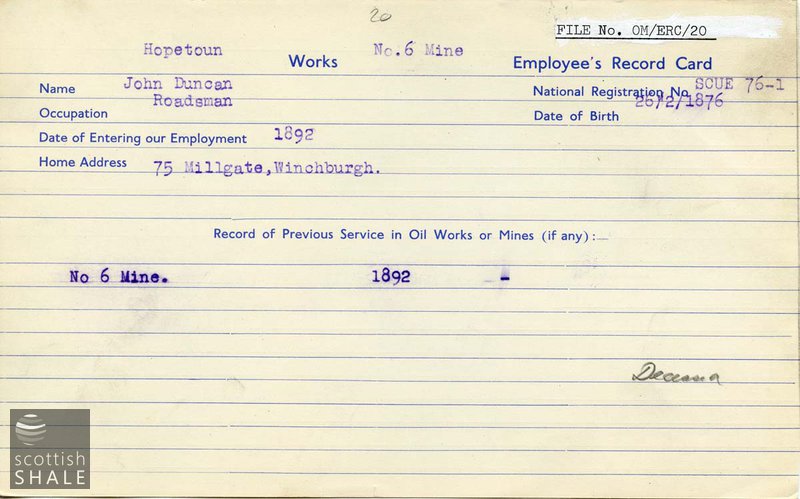 20
FILE No. OM/ERC/20
Hopetoun Works No.6 Mine Employee's Record Card
Name John Duncan National Registration No SCUE 76-1
Occupation Roadsman Date of Birth 26/2/1876
Date of Entering our Employment 1892
Home Address 75 Millgate, Winchburgh.
Record of Previous Service in Oil Works or Mines (if any):—
No 6 Mine. 1892 -
scottish
SHALE